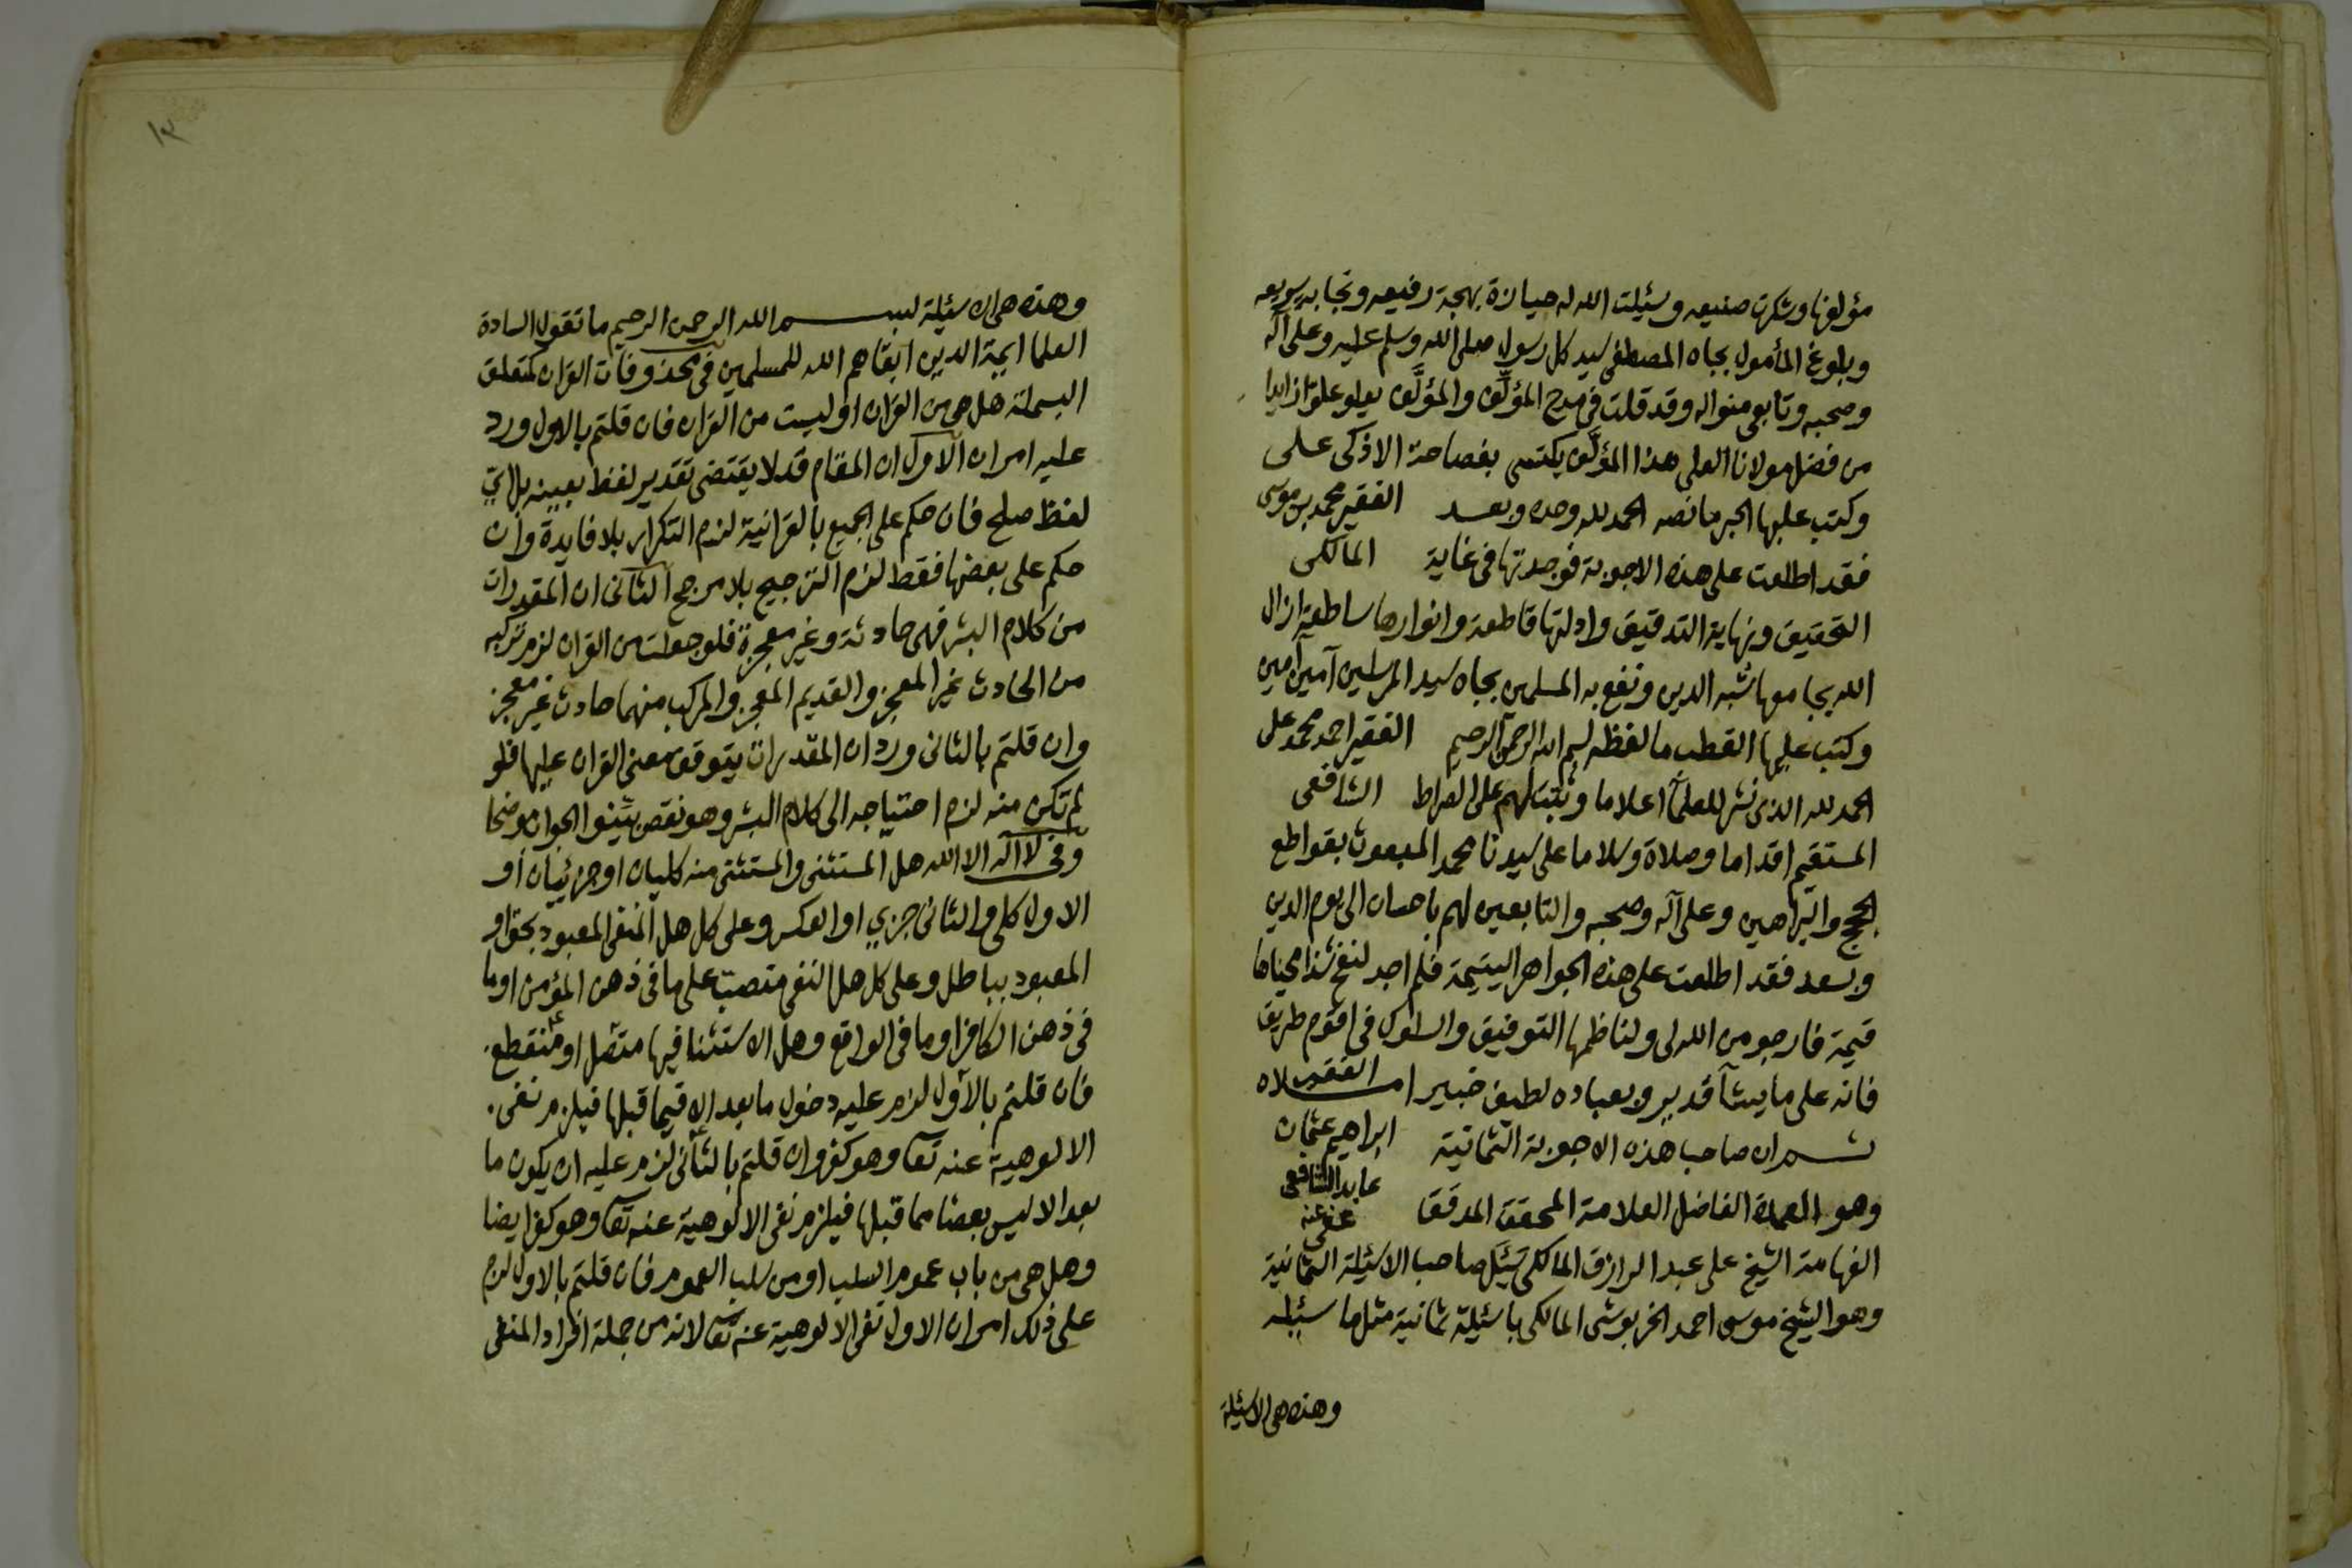 مؤلفها وشكرت صنيعه وسئيلت الله له حيازة بهجة رفيعه ونجابه سريعه
وبلوغ المأمول بجاه المصطفى سيد كل رسول صلى الله وسلم عليه وعلى آله
وصحبه وتابعى منواله وقد قلت فى مدح المؤلِّف والمؤلَّف يعلو علوّا زايدا
من فضل مولانا العلى هذا المؤلَّف يكتسى بفصاحة الاذكى على
وكتب عليها الحبر ما نصه الحمد لله وحده وبعد الفقير محمد بن موسى
فقد اطلعت على هذه الاجوبة فوجدتها فى غاية المالكى
التحقيق ونهاية التدقيق وادلتها قاطعة وانوارها ساطعة ازال
الله بجامعها شبه الدين ونفع به المسلمين بجاه سيد المرسلين آمين آمين
وكتب عليها القطب ما لفظه بسم الله الرحمن الرحيم الفقير احمد محمد على
الحمد لله الذى نشر للعلمآ اعلاما وثبت لهم على الصراط الشافعى
المستقيم اقداما وصلاة وسلاما على سيدنا محمد المبعوث بقواطع
الحجج والبراهين وعلى آله وصحبه والتابعين لهم باحسان الى يوم الدين
وبعد فقد اطلعت على هذه الجواهر اليتيمة فلم اجد لنفح شذا محياها
قيمة فارجو من الله لى ولناظمها التوفيق والسلوك فى اقوم طريق
فانه على ما يشآ قدير وبعباده لطيف خبير املاه الفقير
ثم ان صاحب هذه الاجوبة الثمانية ابراهيم عثمان
وهو العمدة الفاضل العلامة المحقق المدقق عابد الشافعى عفى عنه
الفهامة الشيخ على عبد الرازق المالكى سَئَل صاحب الاسئيلة الثمانية
وهو الشيخ موسى احمد الخربوشى المالكى باسئيلة ثمانية مثل ما سئيله
وهذه هى الاسئيلة
١٣
وهذه هى الاسئيلة بسم الله الرحمن الرحيم ما تقول السادة
العلما ايمة الدين ابقاهم الله للمسلمين فى محذوفات القران كمتعلق
البسملة هل هى من القران او ليست من القران فان قلتم بالاول ورد
عليه امران الاول ان المقام قد لا يقتضى تقدير لفظ بعينه بل اىّ
لفظ صلح فان حكم على الجميع بالقرانية لزم التكرار بلا فايدة وان
حكم على بعضها فقط لزم الترجيح بلا مرجح الثانى ان المقدرات
من كلام البشر فهى حادثة وغير معجزة فلو جعلت من القران لزم تركبه
من الحادث غير المعجز والقديم المعجز والمركب منهما حادث غير معجز
وان قلتم بالثانى ورد ان المقدرات يتوقف معنى القران عليها فلو
لم تكن منه لزم احتياجه الى كلام البشر وهو نقص بينوا الجواب موضحا
وفى لا اله الا الله هل المستثنى والمستثنى منه كليان او جزئيان او
الاول كلى والثانى جزي او العكس وعلى كل هل المنفى المعبود بحق او
المعبود بباطل وعلى كل هل النفى منصب على ما فى ذهن المؤمن او ما
فى ذهن الكافر او ما فى الواقع وهل الاستثنا فيها متصل او منقطع
فان قلتم بالاول لزم عليه دخول ما بعد الا فيما قبلها فيلزم نفى
الالوهية عنه تعآ وهو كفر وان قلتم بالثانى لزم عليه ان يكون ما
بعد الا ليس بعضا مما قبلها فيلزم نفى الالوهية عنه تعآ وهو كفر ايضا
وهل هى من باب عموم السلب او من سلب العموم فان قلتم بالاول لزم
على ذلك امران الاول نفى الالوهية عنه تعآ لانه من جملة افراد المنفى